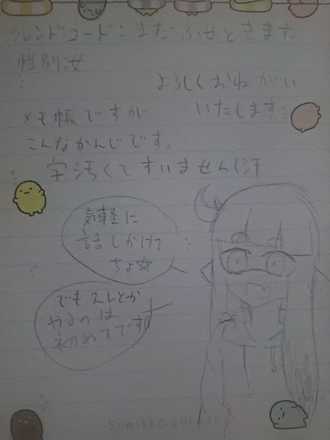 フレンドコード:まだふせときまた
性別女
よろしくおねがい
いたします
メモ帳ですが
こんなかんじです。
字汚くてすいません(汗
気軽に
話しかけて
ちょ☆
でもスレとか
やるのは
初めてです